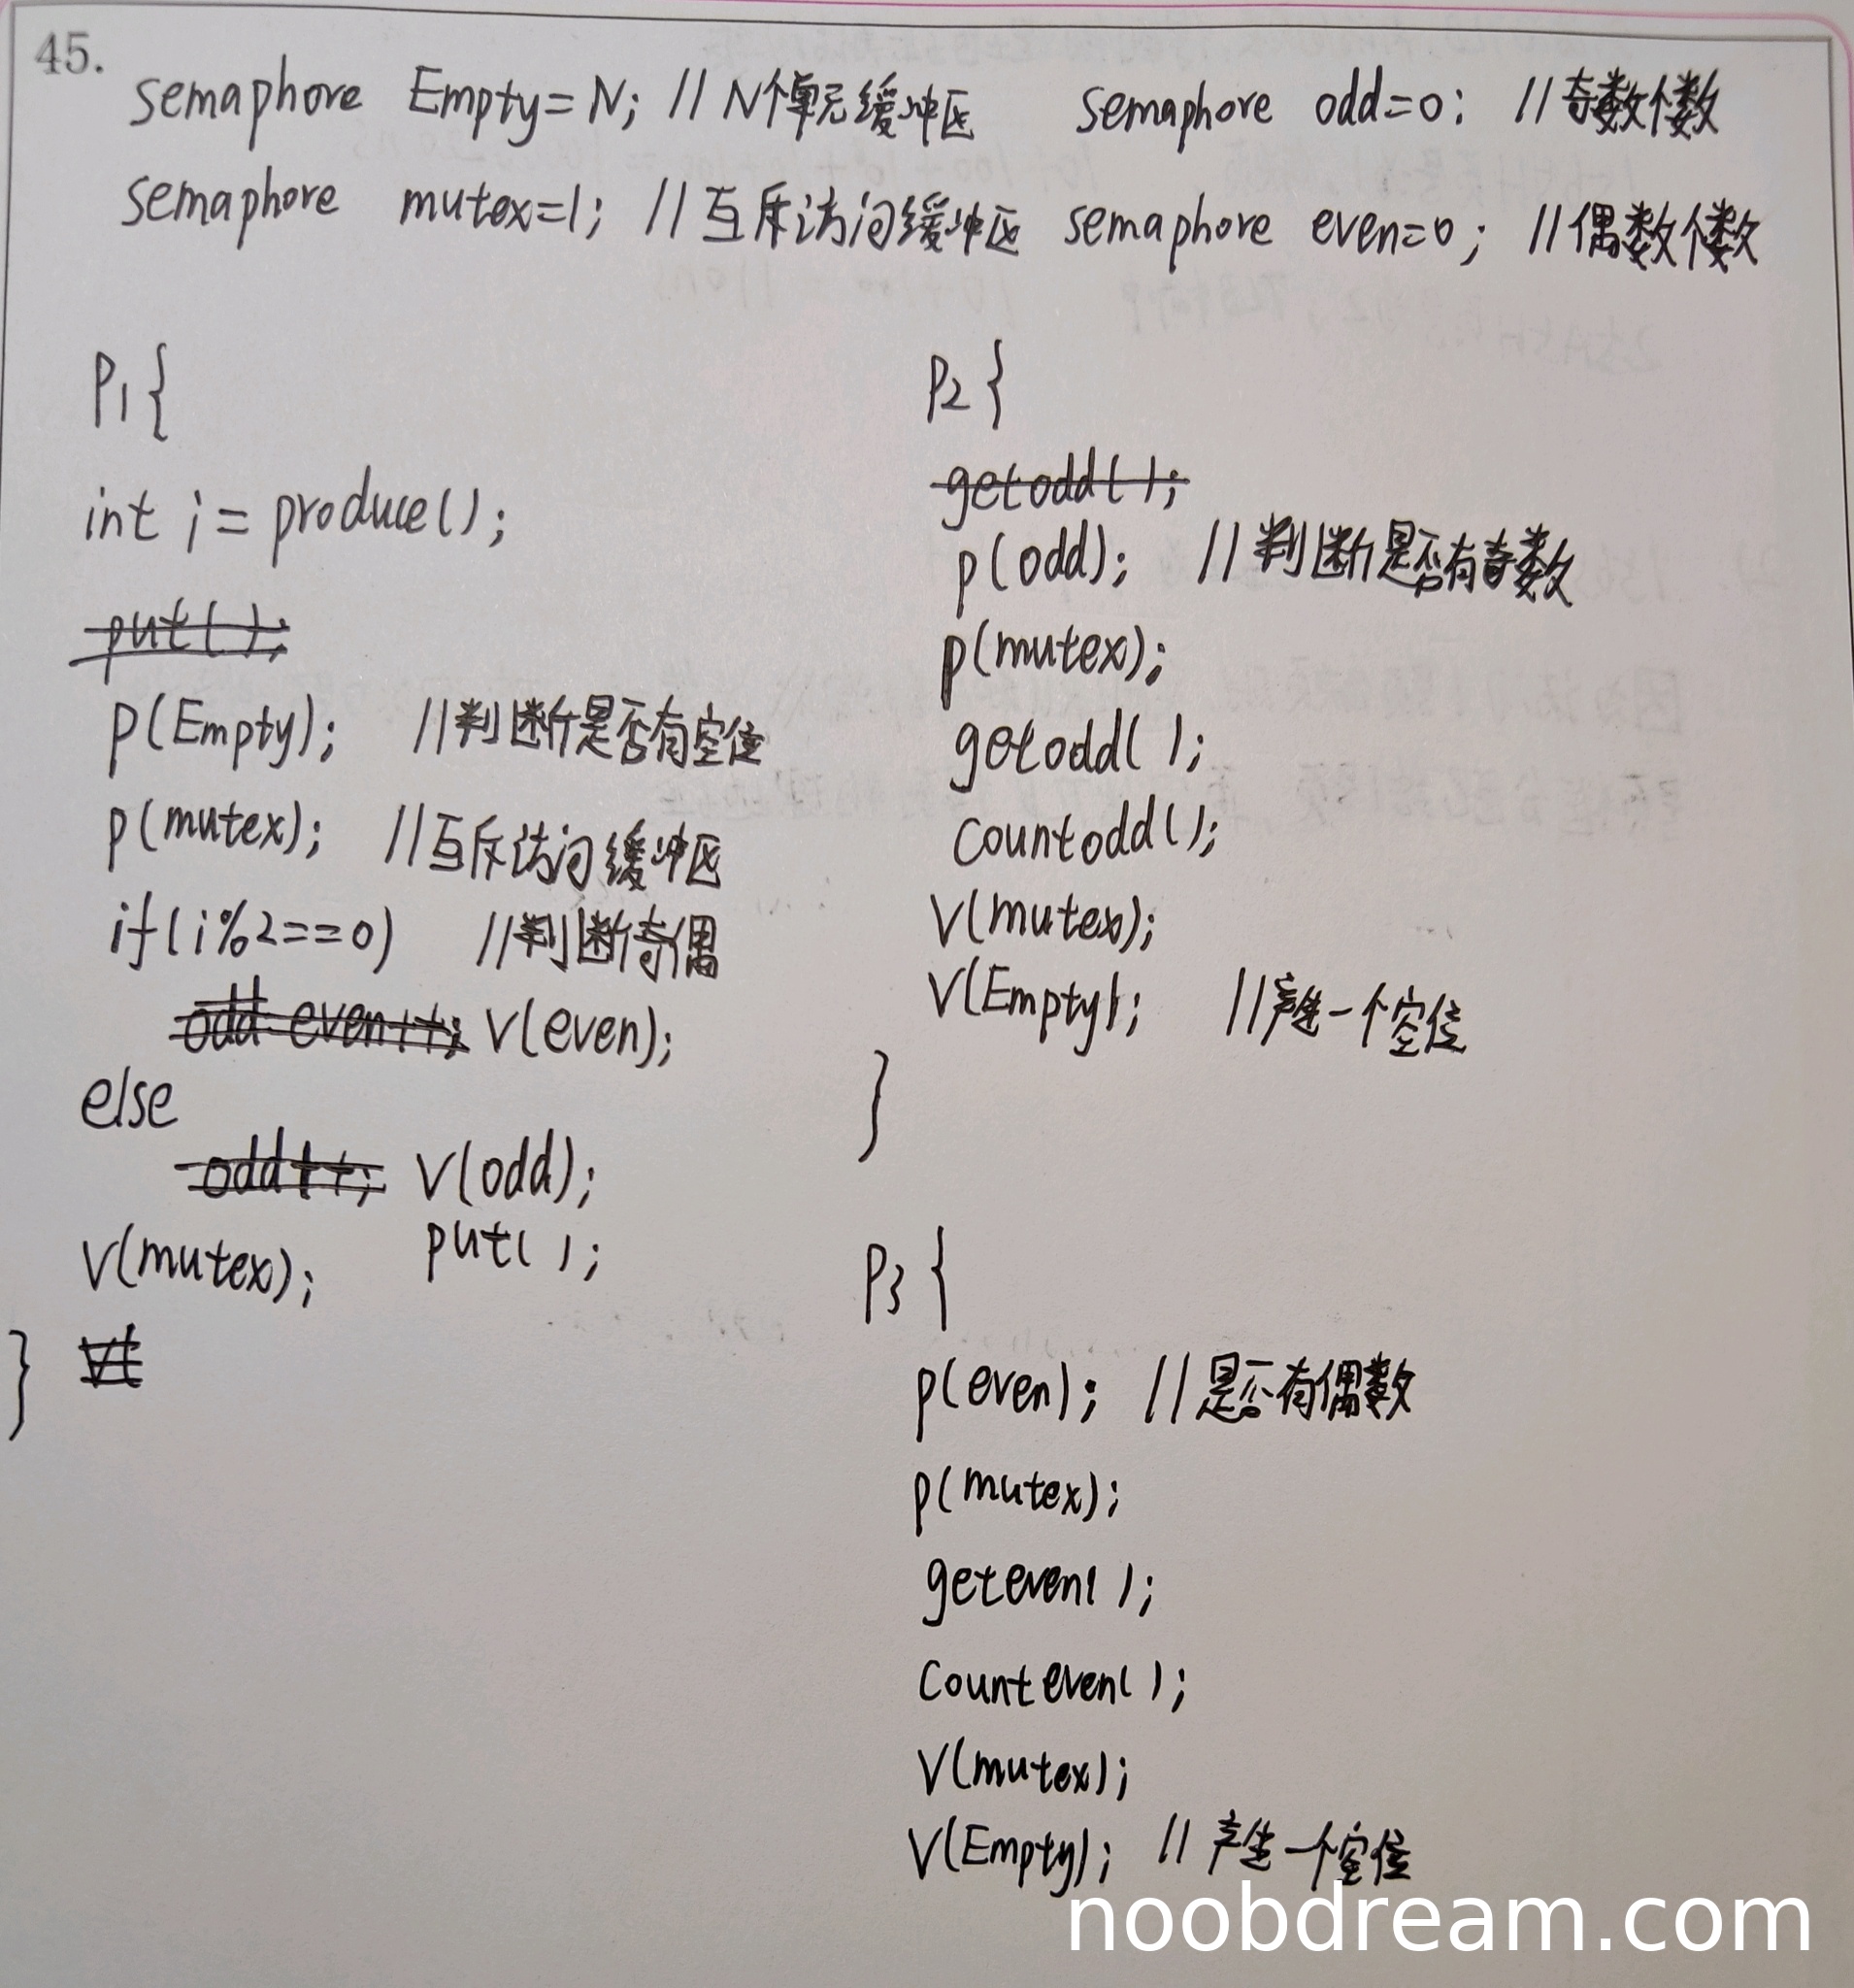 45.
semaphore Empty=N; //N个单元缓冲区 semaphore odd=0; //奇数个数
semaphore mutex=1; //互斥访问缓冲区 semaphore even=0; //偶数个数
P1{
int i=produce();
put();
P(Empty); //判断是否有空位
P(mutex); //互斥访问缓冲区
if(i%2==0) //判断奇偶
V(even);
else
odd++; V(odd);
put();
V(mutex);
}
P2{
getodd();
p(odd); //判断是否有奇数
p(mutex);
getodd();
countodd();
V(mutex);
V(Empty); //产生一个空位
}
P3{
p(even); //是否有偶数
p(mutex);
geteven();
counteven();
V(mutex);
V(Empty); //产生一个空位
noobdream.com